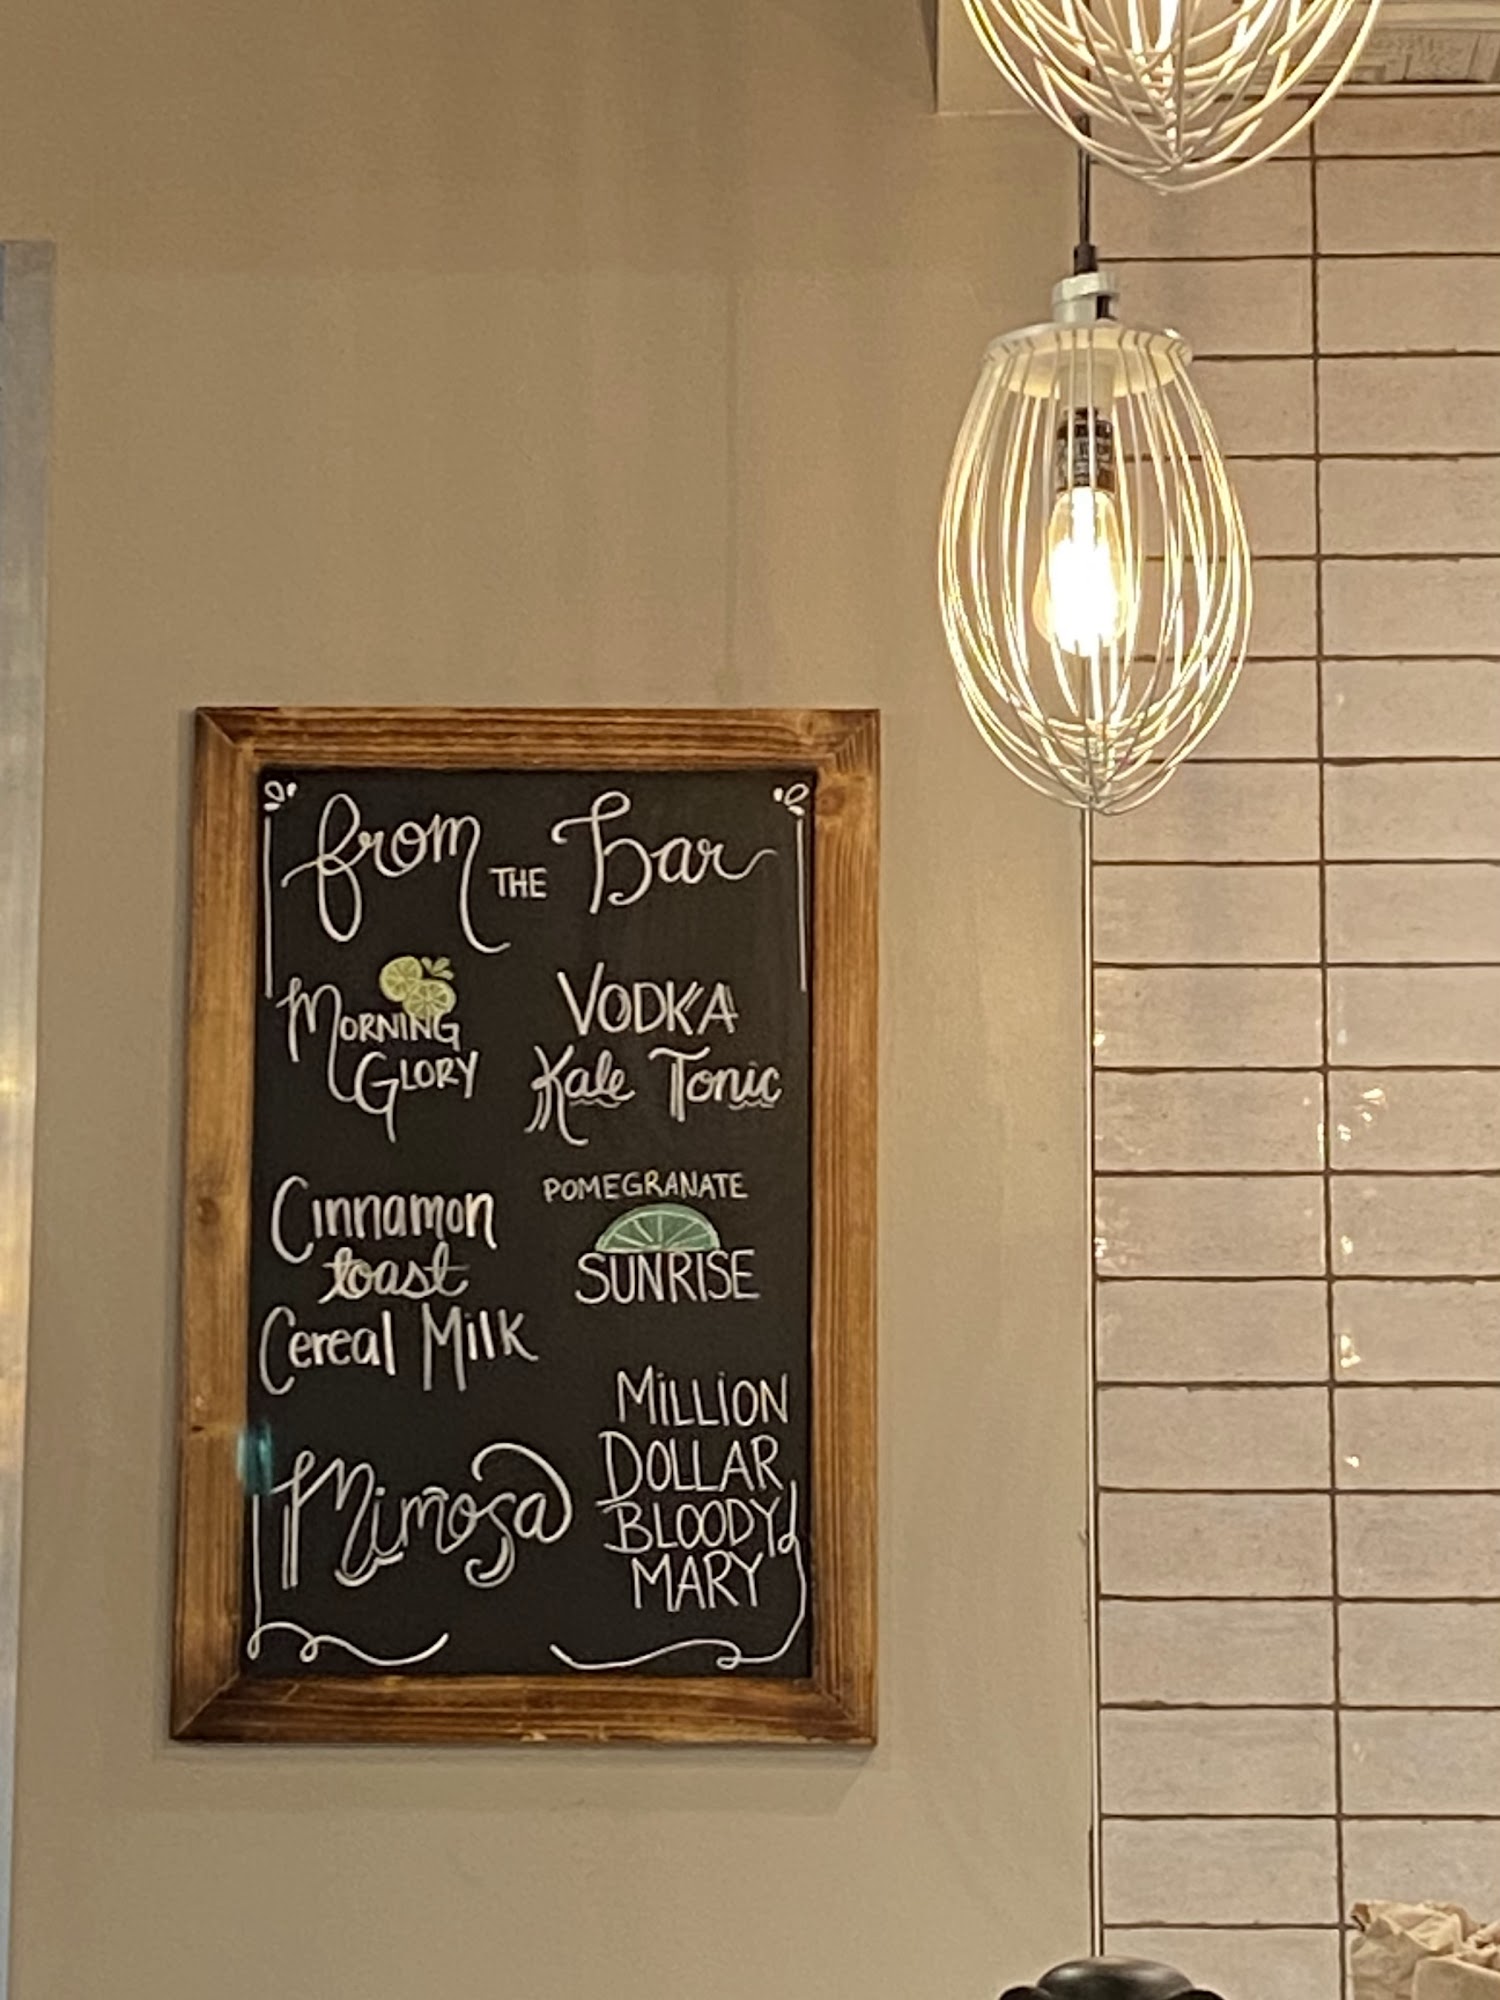 from THE bar
MORNING
GLORY
VODKA
Kale Tonic
Cinnamon
toast
Cereal Milk
POMEGRANATE
SUNRISE
Mimosa
MILLION
DOLLAR
BLOODY
MARY